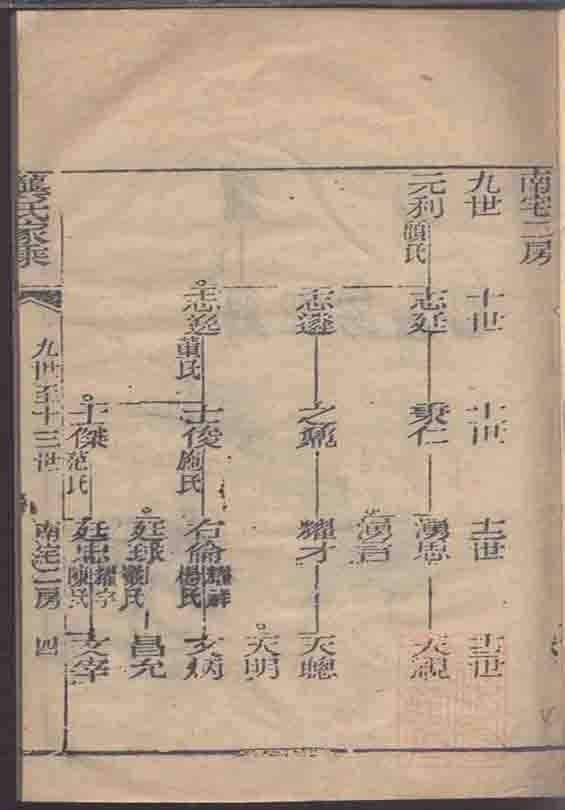 南宅二房
九世
十世
十一世
十二世
十三世
元利 顧氏
志廷
秉仁
漢思
天祝
漢言
志遜
耀才
天聰
天明
志遜 董氏
士俊 施氏
右倫 耀祥 楊氏
文炳
廷球 嚴氏
昌允
士傑 范氏
廷忠 耀宇 陳氏
文宰
龔氏家乘
九世至十三世
南宅二房
四